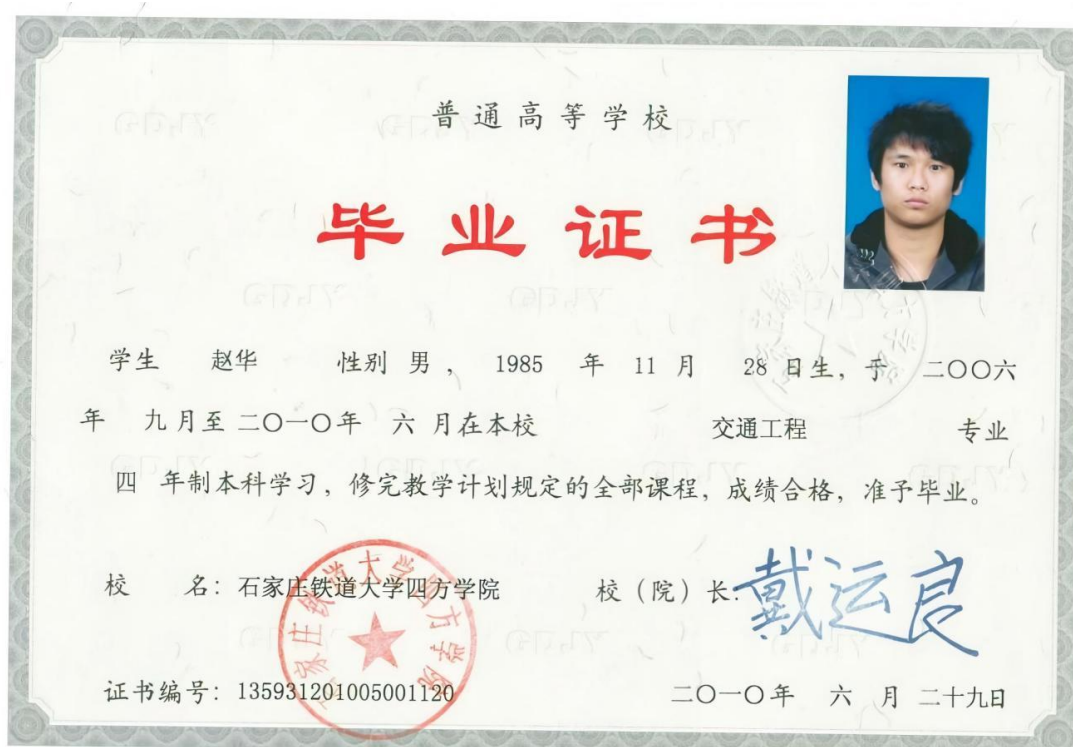 普通高等学校
毕业证书
学生 赵华 性别 男 , 1985 年 11 月 28 日生, 于 二〇〇六
年 九 月至 二〇一〇年 六 月在本校 交通工程 专业
四 年制本科学习, 修完教学计划规定的全部课程, 成绩合格, 准予毕业。
校 名: 石家庄铁道大学四方学院 校（院）长: 戴运良
石家庄铁道大学四方学院
证书编号: 135931201005001120 二〇一〇年 六 月 二十九日